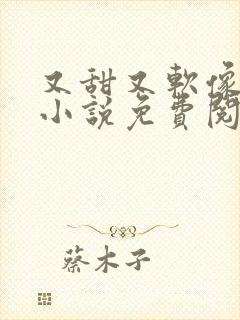 又甜又軟像
小說免費閱
蔡木子